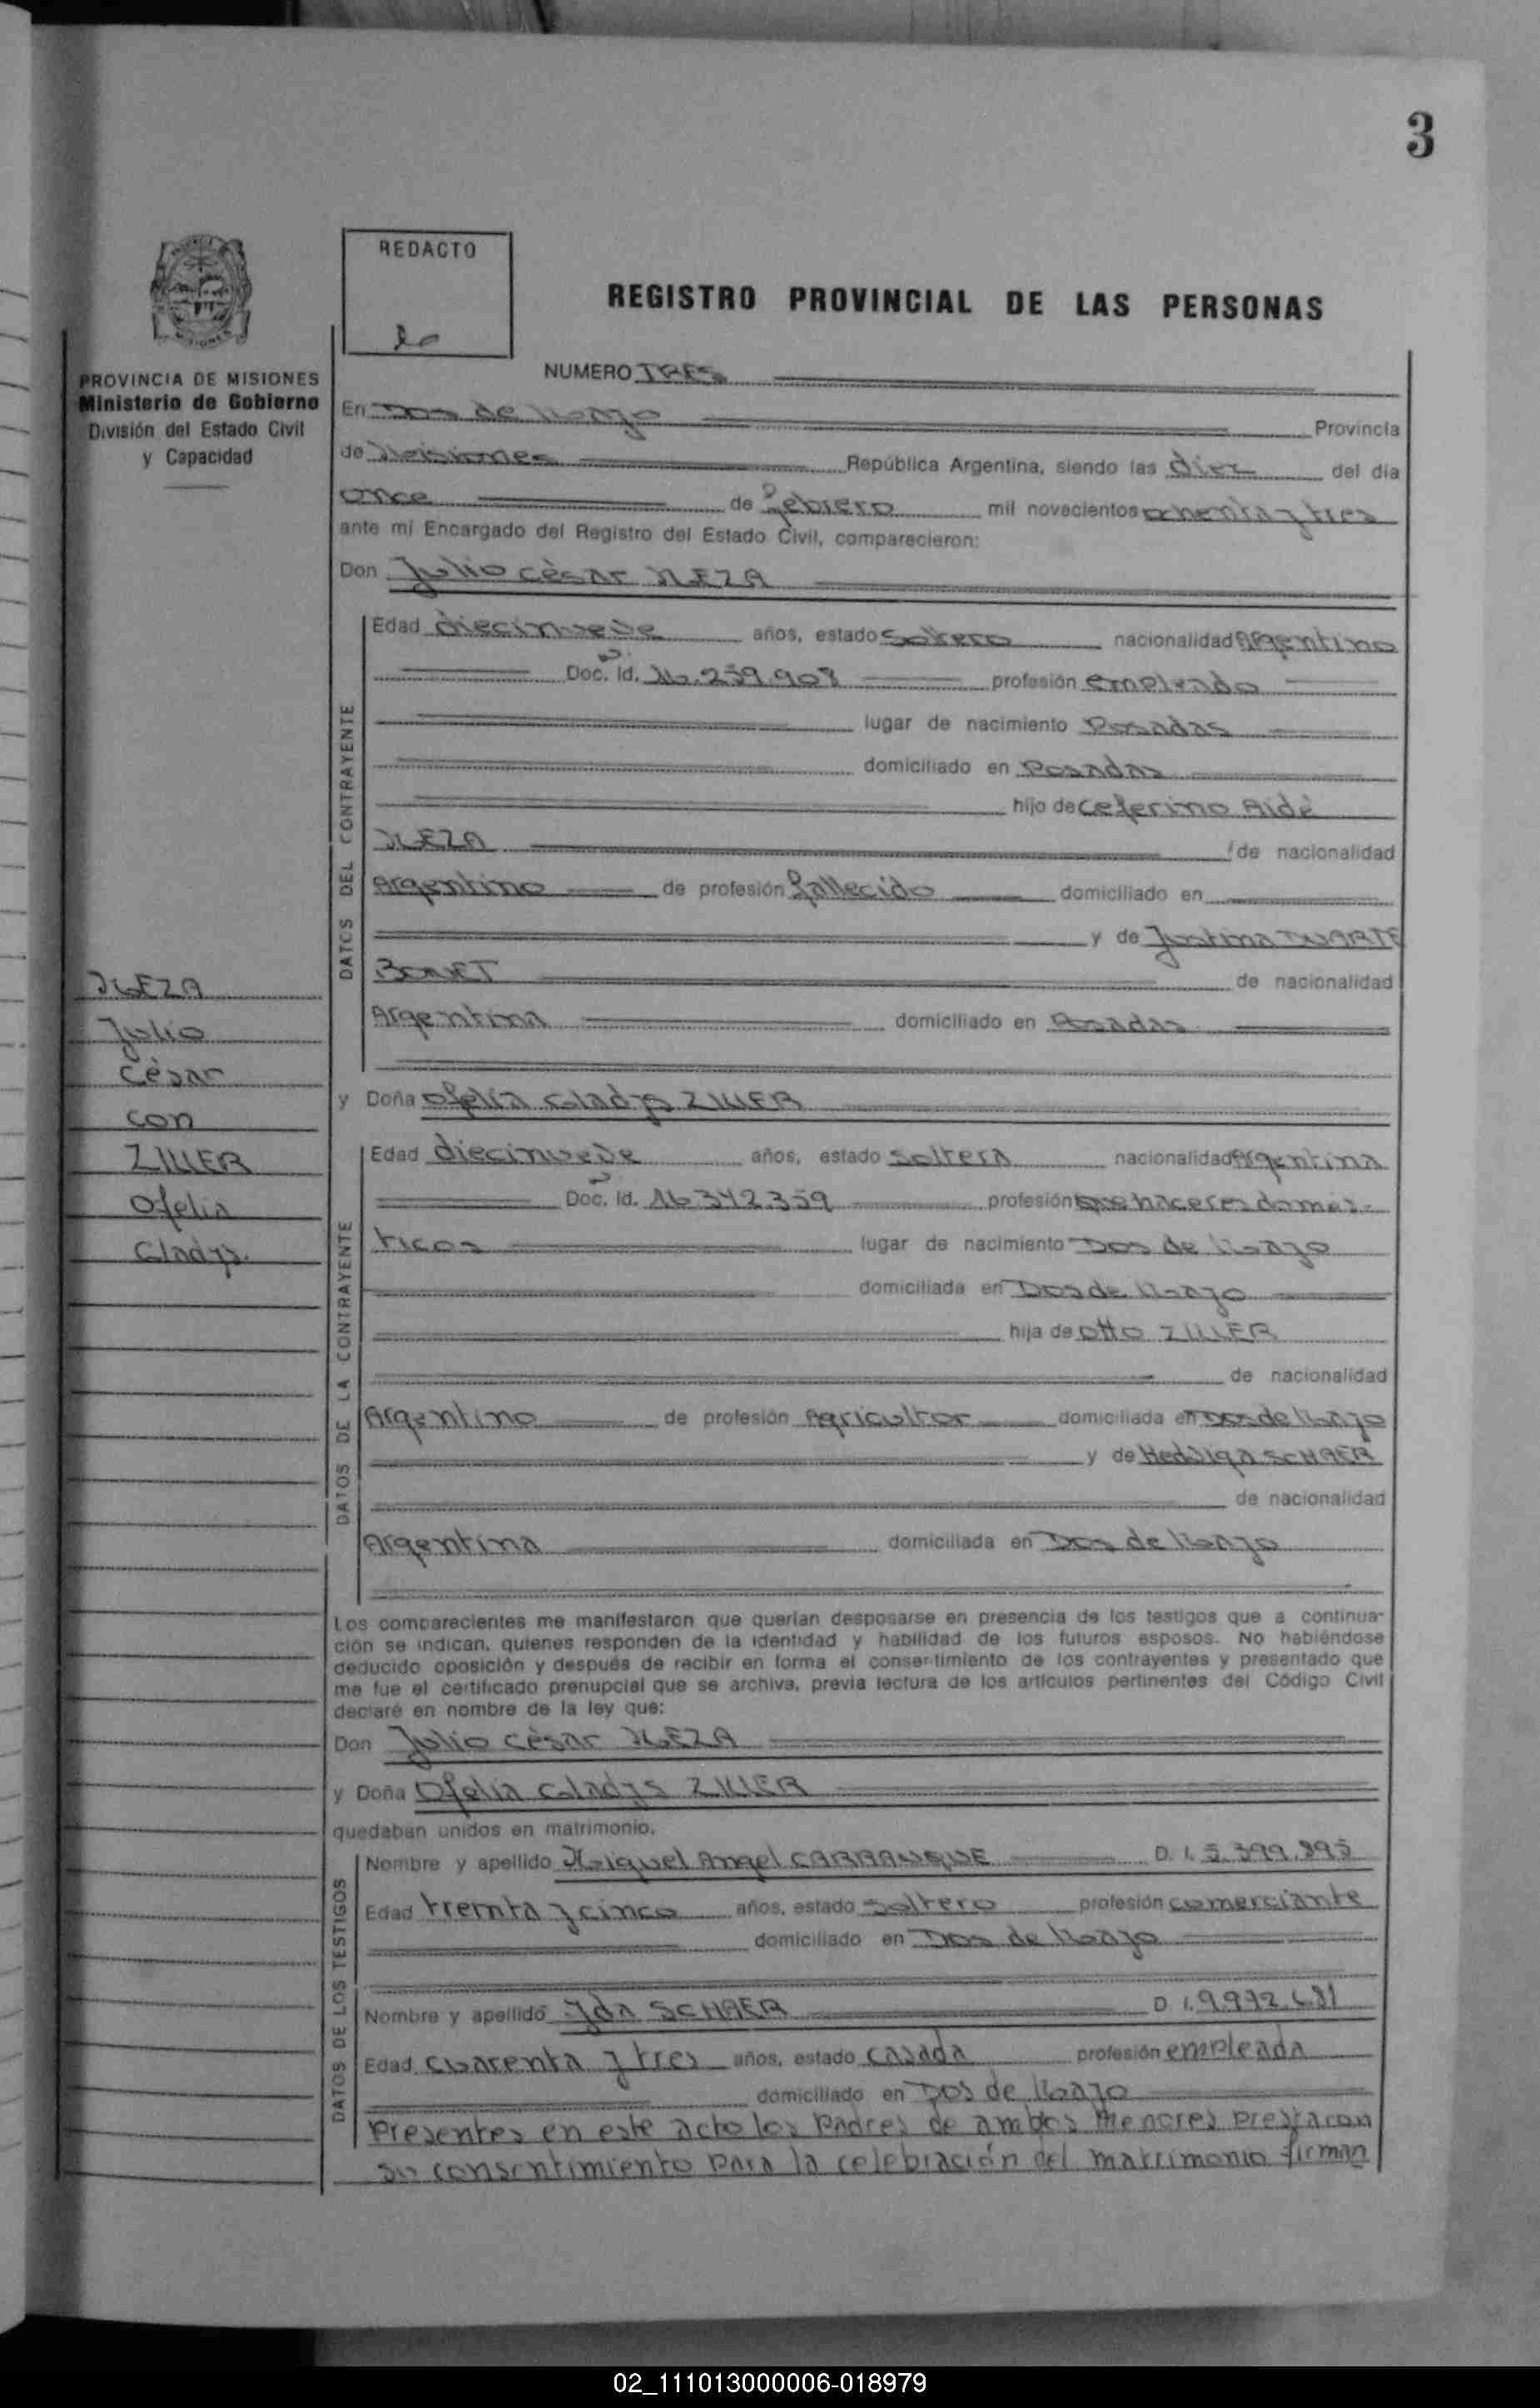 3
REDACTO
REGISTRO PROVINCIAL DE LAS PERSONAS
MISIONES
PROVINCIA DE MISIONES
Ministerio de Gobierno
División del Estado Civil
y Capacidad
NUMERO TRES
En Dos de Mayo Provincia
de Misiones República Argentina, siendo las diez del día
once de febrero mil novecientos ochenta y tres
ante mí Encargado del Registro del Estado Civil, comparecieron:
Don Julio Cèsar MEZA
DATOS DEL CONTRAYENTE
Edad diecinueve años, estado soltero nacionalidad Argentino
Doc. Id. 16.259.908 profesión empleado
lugar de nacimiento Posadas
domiciliado en Posadas
hijo de Ceferino Aidè
MEZA de nacionalidad
Argentino de profesión fallecido domiciliado en
y de Justina DUARTE
BONET de nacionalidad
Argentina domiciliado en Posadas
MEZA
Julio
Cèsar
con
ZILLER
Ofelia
Gladys.
y Doña Ofelia Gladys ZILLER
DATOS DE LA CONTRAYENTE
Edad diecinueve años, estado soltera nacionalidad Argentina
Doc. Id. 16.342.359 profesión que haceres domés-
ticos lugar de nacimiento Dos de Mayo
domiciliada en Dos de Mayo
hija de Otto ZILLER
de nacionalidad
Argentino de profesión Agricultor domiciliada en Dos de Mayo
y de Heduiga SCHAER
de nacionalidad
Argentina domiciliada en Dos de Mayo
Los comparecientes me manifestaron que querían desposarse en presencia de los testigos que a continua-
ción se indican, quienes responden de la identidad y habilidad de los futuros esposos. No habiéndose
deducido oposición y después de recibir en forma el consentimiento de los contrayentes y presentado que
me fue el certificado prenupcial que se archiva, previa lectura de los artículos pertinentes del Código Civil
declaré en nombre de la ley que:
Don Julio Cèsar MEZA
y Doña Ofelia Gladys ZILLER
quedaban unidos en matrimonio.
DATOS DE LOS TESTIGOS
Nombre y apellido Miguel Angel CARRANQUE D. I. 5.399.895
Edad treinta y cinco años, estado soltero profesión comerciante
domiciliado en Dos de Mayo
Nombre y apellido Yda SCHAER D. I. 9.992.681
Edad cuarenta y tres años, estado casada profesión empleada
domiciliado en Dos de Mayo
Presentes en este acto los Padres de ambos menores prestaron
su consentimiento para la celebración del matrimonio firman
02_111013000006-018979